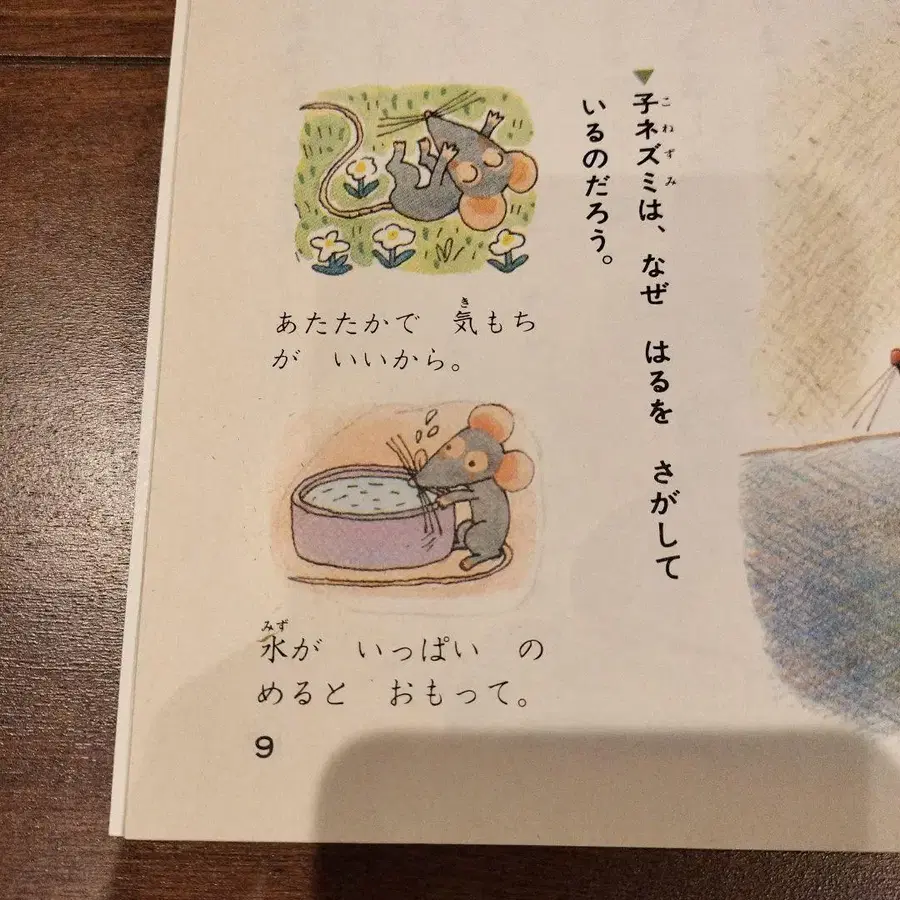 ▼子ネズミは、なぜ　はるを　さがして
いるのだろう。
あたたかで　気もち
が　いいから。
水が　いっぱい　の
めると　おもって。
9